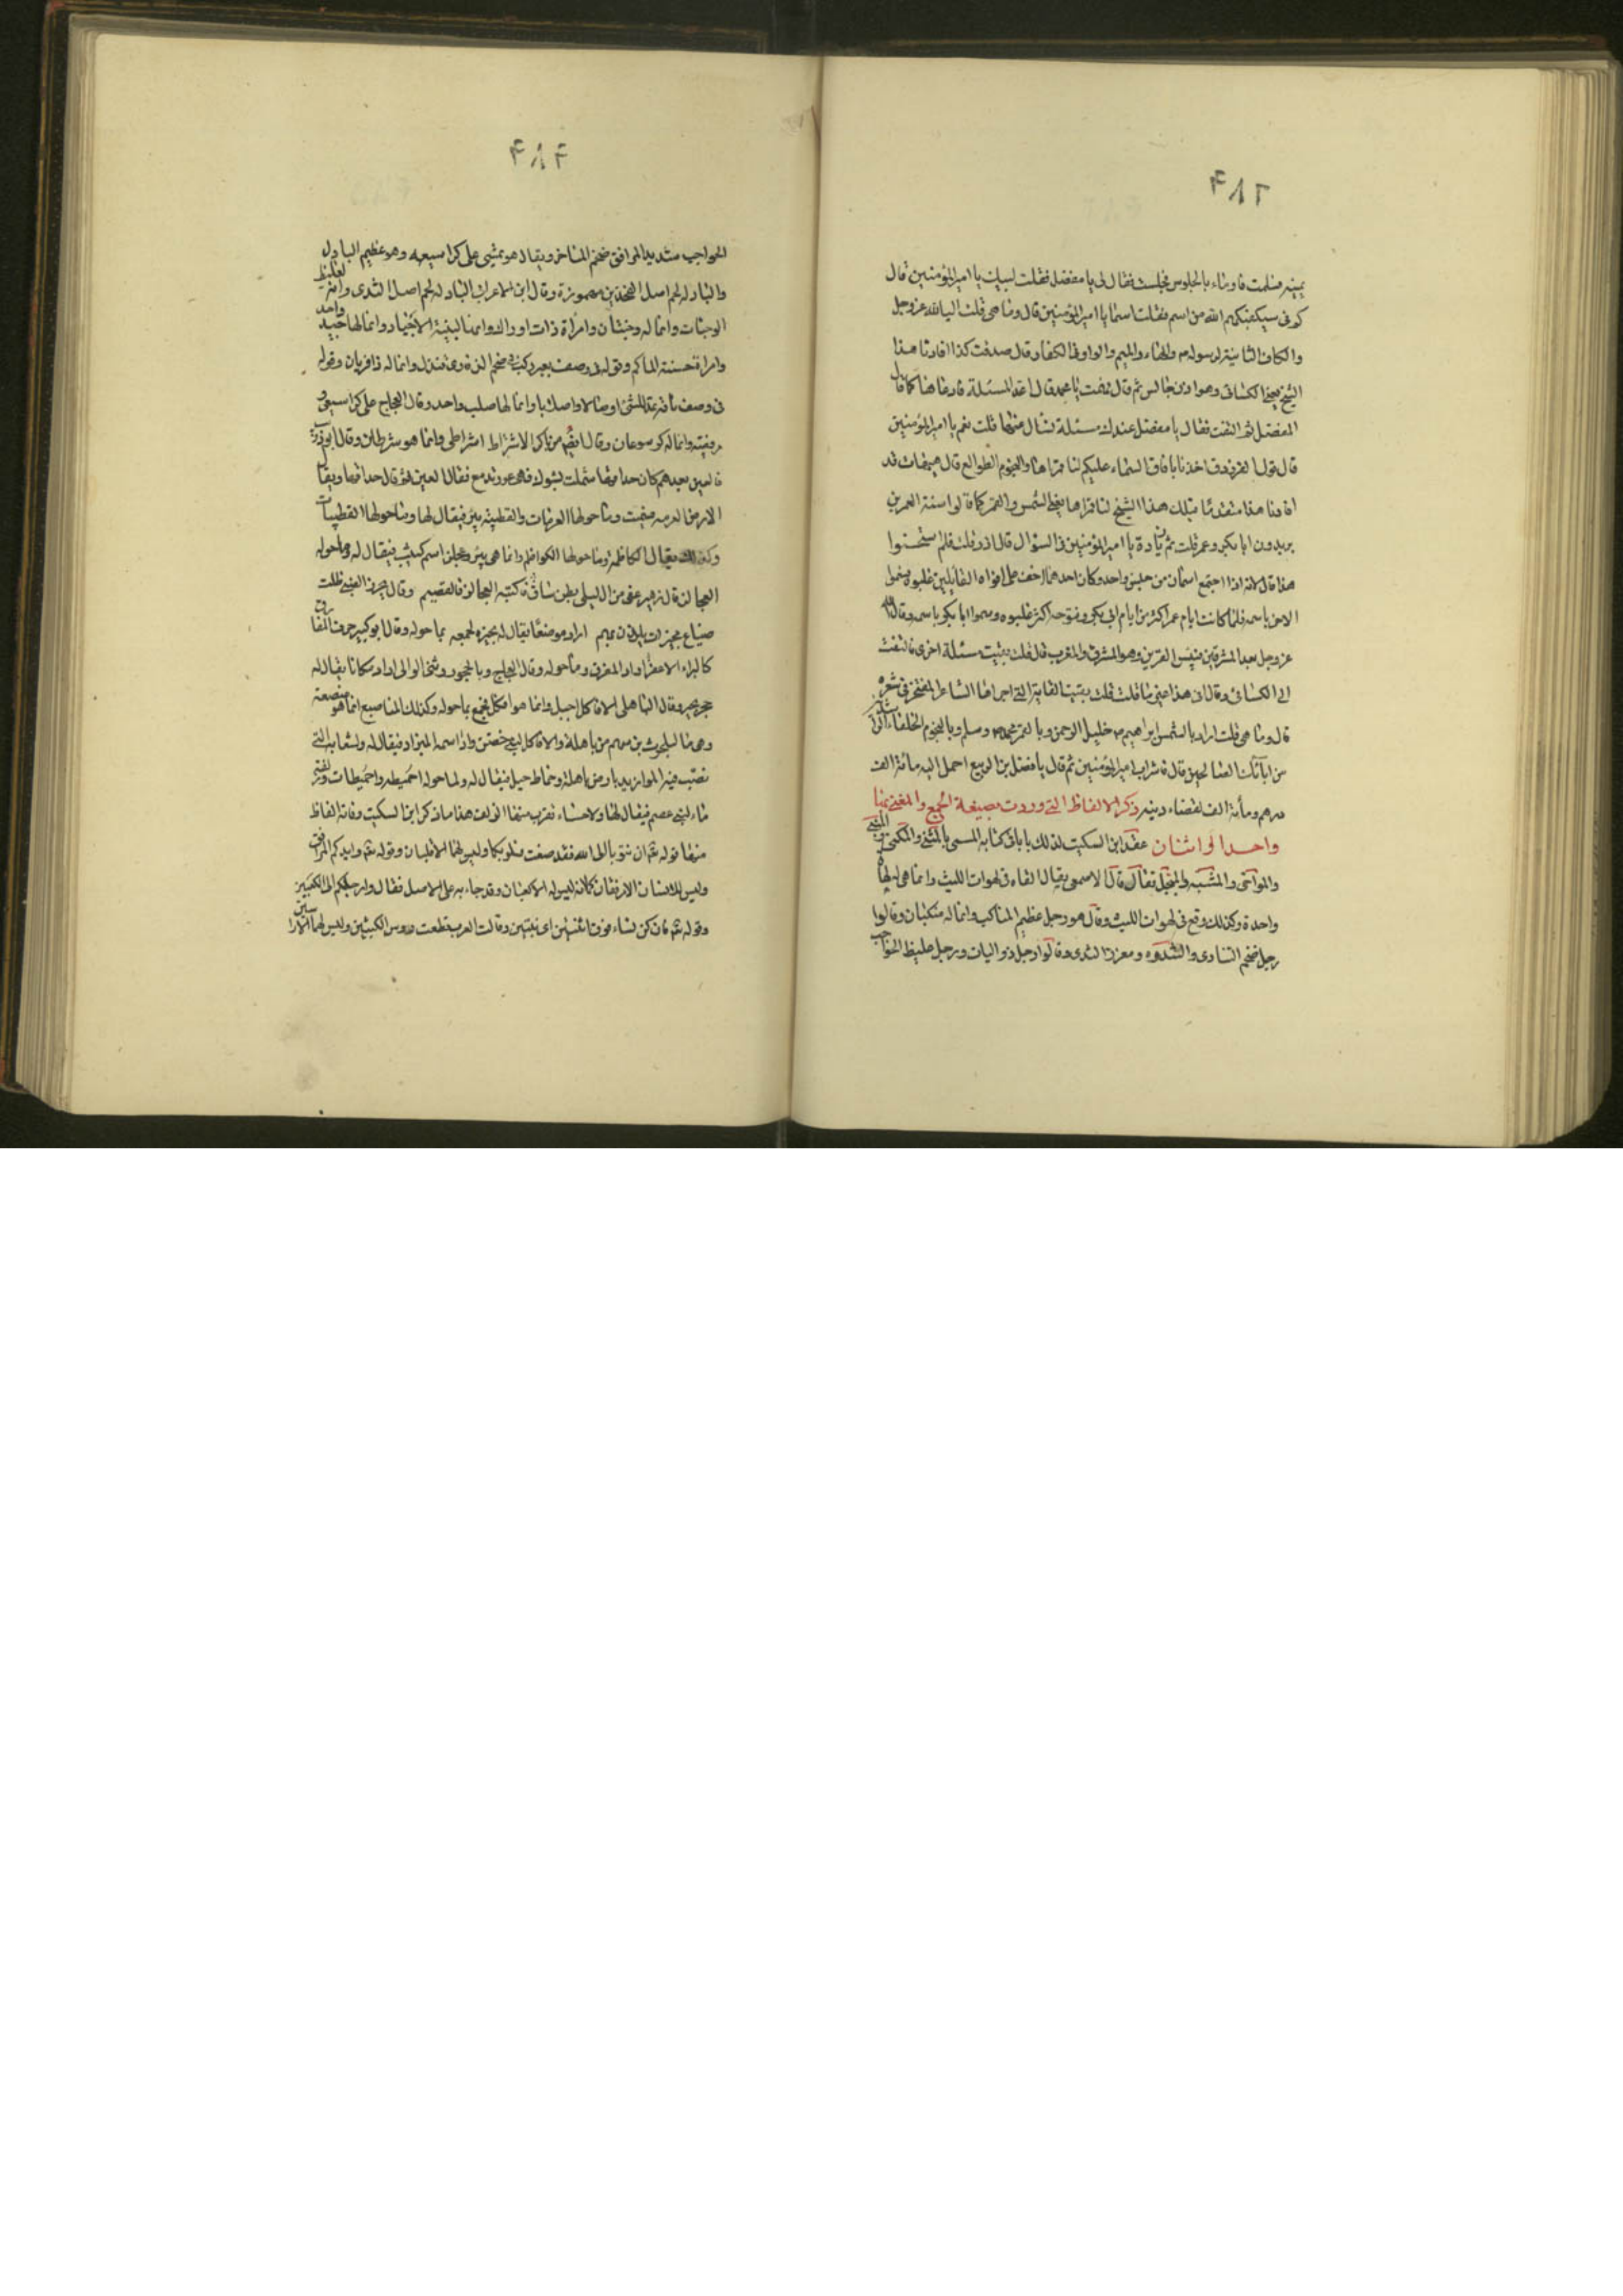 ٣٨٢
يمينه فسلمت فاومأ بالجلوس فجلست فقال لي يا مفضل فقلت لبيك يا امير المؤمنين قال
كم في سيكفيكهم الله من اسم فقلت اسما يا امير المؤمنين قال وما هي قلت اليا لله عز وجل
والكاف الثانية لرسوله والهاء والميم والواو في الكفار قال صدقت كذا افادنا هذا
الشيخ يعني الكسائي وهو اذن جالس ثم قال فهمت يا محمد قال اعد المسئلة فاعادها كما قال
المفضل ثم التفت فقال يا مفضل عندك مسئلة تسال عنها قلت نعم يا امير المؤمنين
قال قول الفرزدق اخذنا بافاق السماء عليكم لنا قمراها والنجوم الطوالع قال هيهات قد
افادنا هذا متقدما قبلك هذا الشيخ لنا قمراها يعني الشمس والقمر كما قالوا سنة العمرين
يريدون ابا بكر وعمر قلت ثم زيادة يا امير المؤمنين في السؤال قال زد قلت فلم استحسنوا
هذا قال لانه اذا اجتمع اسمان من جنس واحد وكان احدهما اخف على افواه القائلين غلبوه وسموا
الاخر باسمه فلما كانت ايام عمر اكثر من ايام ابي بكر وفتوحه اكثر غلبوه وسموا ابا بكر باسمه وقال الله
عز وجل بعد المشرقين فبئس القرين وهو المشرق والمغرب قال قلت بقيت مسئلة اخرى فالتفت
الى الكسائي وقال افي هذا غير ما قلت قلت بقيت الغاية التي اجراها الشاعر المفتخر في شعره
قال وما هي قلت اراد بالشمس ابراهيم خليل الرحمن وبالقمر محمد وسلم وبالنجوم الخلفاء
من ابائك الصالحين قال فاشراب امير المؤمنين ثم قال يا فضل بن الربيع احمل اليه مائة الف
درهم ومائة الف لقضاء دينه ذكر الالفاظ التي وردت بصيغة الجمع والمعنى بها
واحد او اثنان عقد ابن السكيت لذلك بابا في كتابه المسمى بالمثنى والمكنى والمبنى
والمواخي والمشبه والمنحل فقال قال الاصمعي يقال القاه في لهوات الليث وانما هي لهاة
واحدة وكذلك وقع في لهوات الليث وقال هو رجل عظيم المناكب وانما له منكبان وقالوا
رجل ضخم الثنادي والثندوة ومغرز الثدي وقالوا رجل ذو اليات ورجل غليظ الحواجب
٣٨٣
الحواجب شديد المرافق ضخم المناخر ويقال هو يمشي على كراسيعه وهو عظيم البآدل
والبادلة لحم اصل الفخذين مهموزة وقال ابن الاعرابي البادلة لحم اصل الثدي وانه لغليظ
الوجنات وانما له وجنتان وامراة ذات اوراك وانها لبينة الاجياد وانما لها جيد واحد
وامراة حسنة الماكم وقوله في وصف بعير ركب في ضخم الذفارى قندل وانما له ذفريان وقوله
في وصف ناقة تمد للمشي اوصالا واصلابا وانما لها صلب واحد وقال العجاج على كراسيعي و
مرفقيه وانما له كرسوعان وقال ايضا من باكر الاشراط اشراطي وانما هو شرطان وقال ابو ذؤيب
فالعين بعدهم كان حداقها سملت بشوك فهي عور تدمع فقال العين ثم قال حداقها ويقال
الارض العرمة سميت وما حولها العرمات والقطبية بئر فيقال لها وما حولها القطبيات
وكذلك يقال لكاظمة وما حولها الكواظم وانما هي بئر وعجلز اسم كثيب فيقال له وما حوله
العجالز قال زهير عفى من ال ليلى بطن ساق فاكثبة العجالز فالقصيم وقال محرز الضبي ظلت
ضباع مجيرات يلذن بهم اراد موضعا يقال له مجيرة فجمعه بما حوله وقال ابو كبير حرق المفارق
كالبراء الاعفر اراد المفرق وما حوله وقال العجاج وبالحجور وثنى الوالى اراد مكانا يقال له
حجر بجير وقال الباهلي الافاكل اجبل وانما هو افكل فجمع بما حوله وكذلك المناصع انما هو منصعة
وهي ما لبلحرث بن سهم من باهلة والافاكل لبني حصن واد اسمه الميراد فيقال له ولشعابه التي
تصب فيه المواريد بارض باهلة وحماط جبل فيقال له ولما حوله احميطة واحميطات وزلفة
ماء لبني عصم فيقال لها ولاحساء تقرب منها الزلف هذا ما ذكر ابن السكيت وفاته الفاظ
منها قوله تعالى ان تتوبا الى الله فقد صغت قلوبكما وليس لهما الا قلبان وقوله تعالى وايديكم الى المرافق
وليس للانسان الا مرفقان كما انه ليس له الا كعبان وقد جاء به على الاصل فقال وارجلكم الى الكعبين
وقوله تعالى فان كن نساء فوق اثنتين اي ثنتين وقالت العرب قطعت رؤوس الكبشين وليس لهما الا راسين